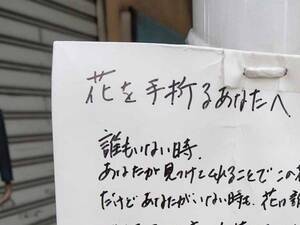 花を手折るあなたへ
誰もいない時、
あなたが見つけてくれることでこの
だけどあなたがいない時も、花は